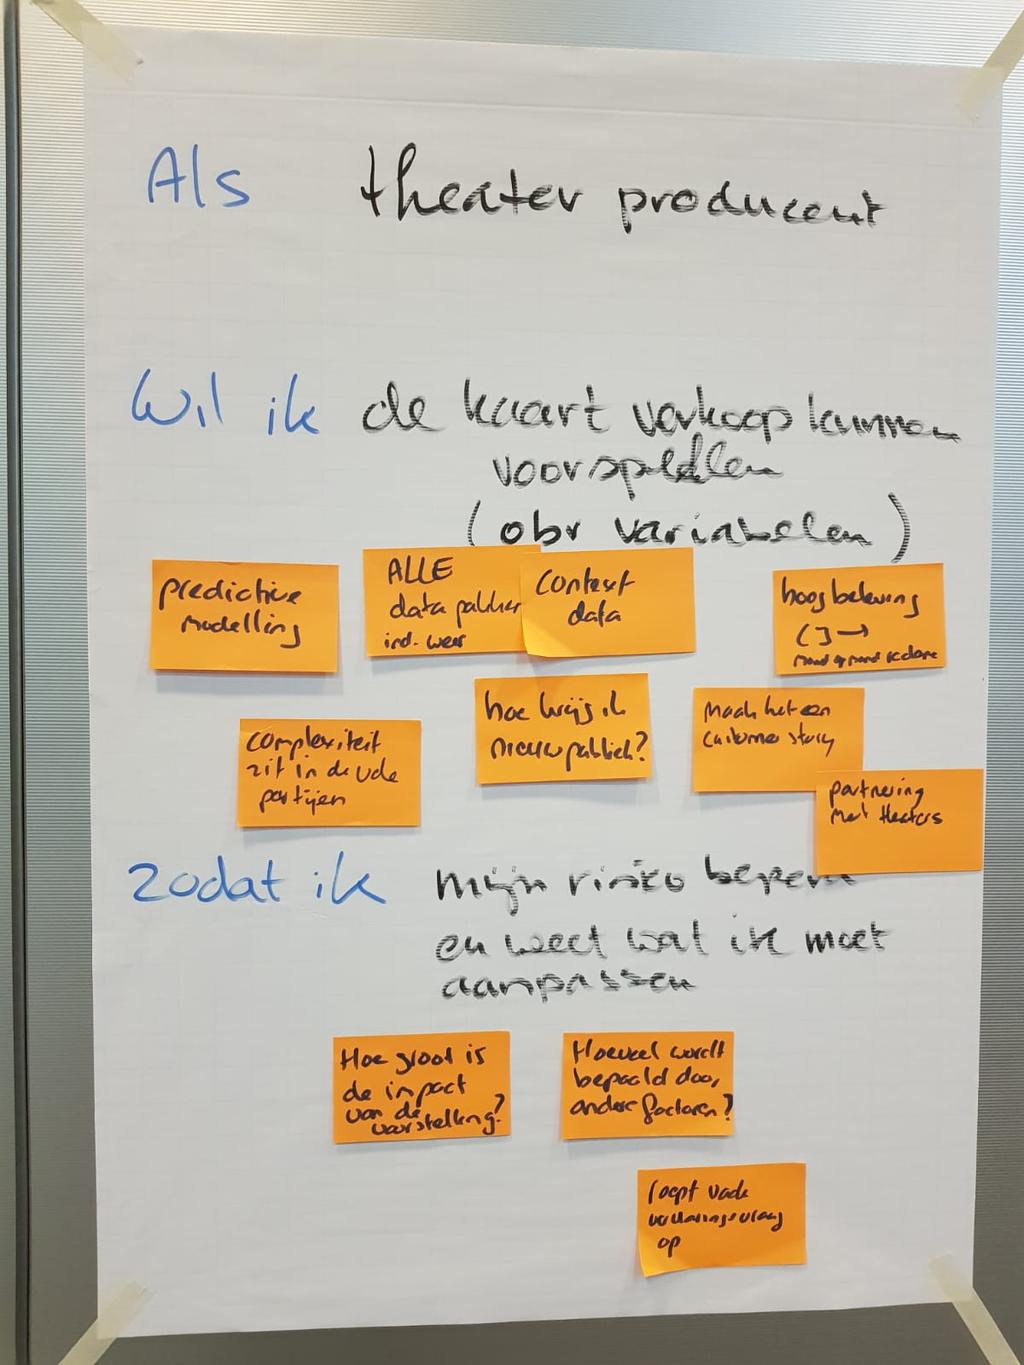 Als theater producent
Wil ik de kaart verkoop kunnen
voorspellen
(obv variabelen)
predictive
modelling
ALLE
data pakken
incl. weer
context
data
hoog beleving
[ ] →
mond op mond reclame
complexiteit
zit in de vele
partijen
hoe krijg ik
nieuw publiek?
Maak het een
customer story
partnering
met theaters
zodat ik mijn risiko beperk
en weet wat ik moet
aanpassen
Hoe groot is
de impact
van de
voorstelling?
Hoeveel wordt
bepaald door
andere factoren?
loopt vaak
op